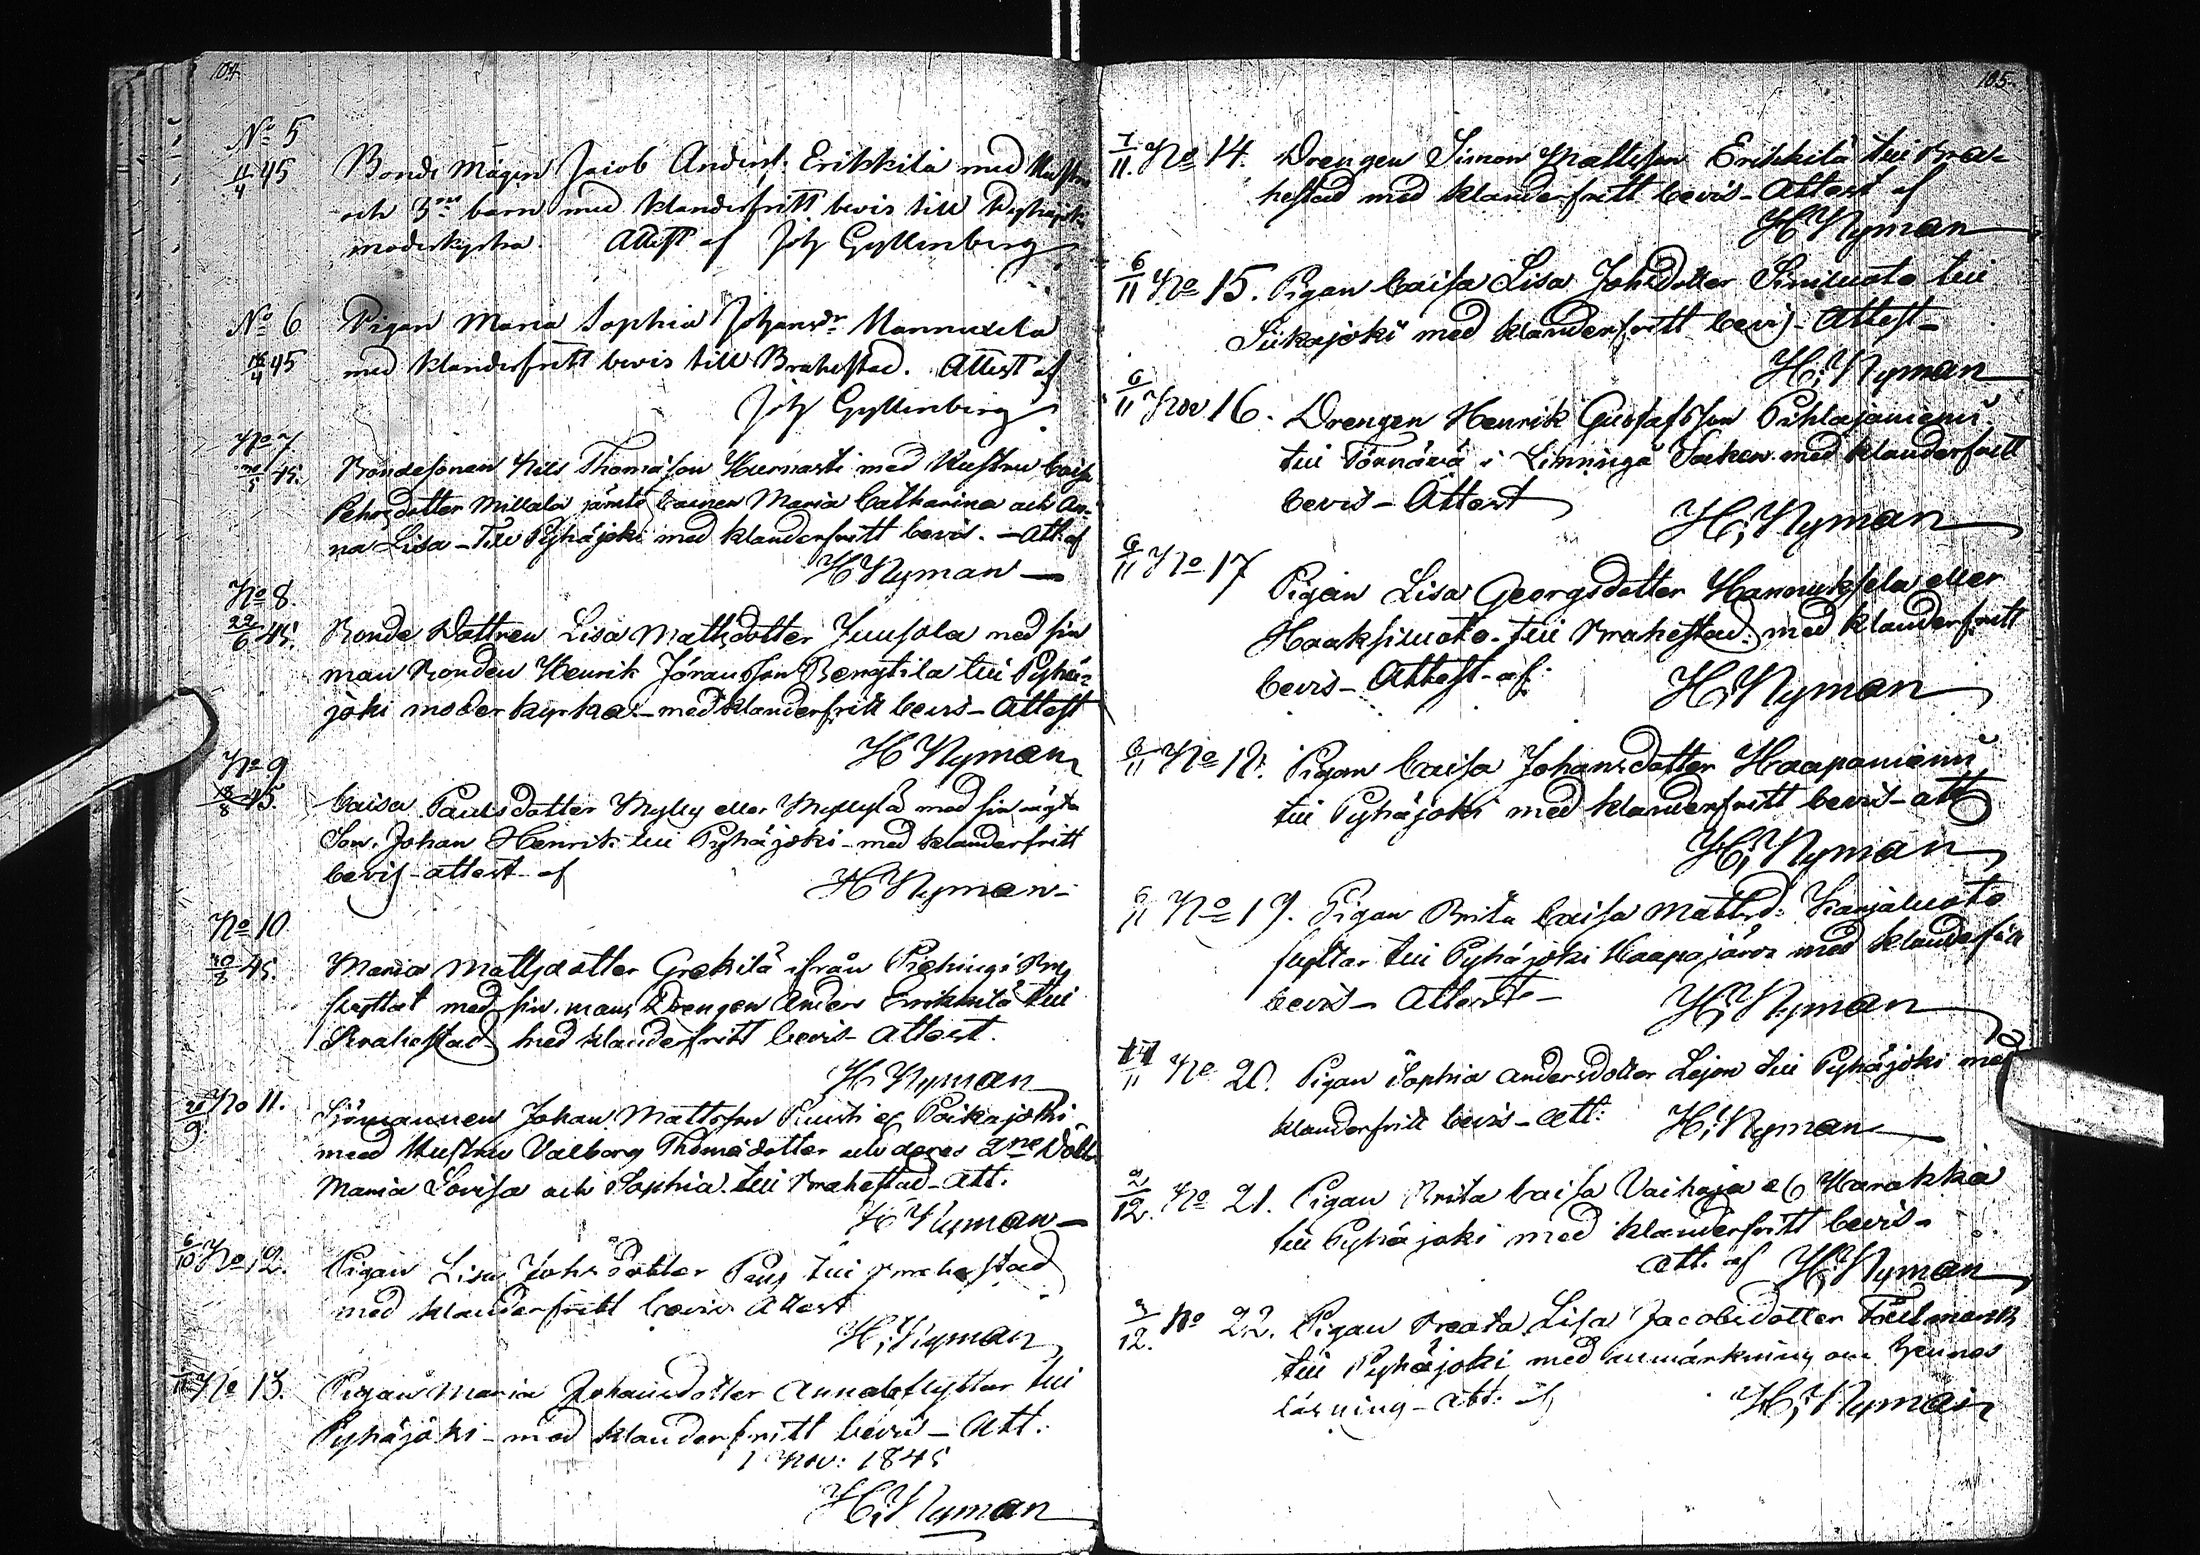 104.
No 5
11/4 45 Bonde Mågen Jacob Anderss. Erikkilä med Hustru
och 3ne barn med klanderfritt bevis till Pyhäjoki
moderkyrka. Attest af Joh Gyllenberg
No 6 Pigan Maria Sophia Johansdr Hannuxela
16/4 45 med klanderfritt bevis till Brahestad. Attest af
Joh Gyllenberg
No 7
45. Bondesonen Nils Thomasson Hurnasti med Hustru Caisa
Pehrsdotter Millala jämte barnen Maria Catharina och An-
na Lisa - Till Pyhäjoki med klanderfritt bevis. - Att. af
H Nyman
No 8.
22/6 45. Bonde Dottren Lisa Mattsdotter Juusola med sin
man Bonden Henrik Jöransson Bengtila till Pyhä-
joki moder kyrka. - med klanderfritt bevis - Attest
H Nyman
No 9
45. Caisa Paulsdotter Mylly eller Myllylä med sin oägta
Son. Johan Henrik till Pyhäjoki - med klanderfritt
bevis - attest - af H Nyman -
No 10
45. Maria Mattsdotter Grekilä ifrån Piehingi By
flyttat med sin man Drengen Anders Erikkilä till
Brahestad med klanderfritt bevis - Attest.
H Nyman
No 11. Sjömannen Johan Mattsson Ruuti el Poikajoki
9 med Hustru Valborg Thomasdotter och deras 2ne Dött.
Maria Lovisa och Sophia till Brahestad - Att.
H Nyman -
6/10 No 12. Pigan Lisa Johsdotter Pau till Brahestad
med klanderfritt bevis Attest
H. Nyman
No 13. Pigan Maria Johansdotter Annala flyttar till
Pyhäjoki - med klanderfritt bevis - Att.
1 Nov: 1845
H. Nyman
105.
1/11. No 14. Drengen Simon Mattsson Erikkilä till Bra-
hestad med klanderfritt bevis - Attest af
H Nyman
6/11 No 15. Pigan Caisa Lisa Johsdotter Siniluoto till
Siikajoki med klanderfritt bevis - Attest -
H. Nyman
6/11 No 16. Drengen Henrik Gustafsson Pihlajaniemi
till Törnävä i Limminga Socken med klanderfritt
bevis - Attest H. Nyman
6/11 No 17
Pigan Lisa Georgsdotter Hannuksela eller
Haaksiluoto. till Brahestad. med klanderfritt
bevis - Attest - af. H. Nyman
6/11 No 18. Pigan Caisa Johansdotter Haapaniemi
till Pyhäjoki med klanderfritt bevis - att
H. Nyman
6/11 No 19. Pigan Brita Caisa Mattsd: Karjaluoto
flyttar till Pyhäjoki Haapajärvi med klanderfritt
bevis - Attest - H. Nyman
11 No 20. Pigan Sophia Andersdotter Lejon till Pyhäjoki med
klanderfritt bevis - att: H. Nyman
2/12. No 21. Pigan Brita Caisa Vaihoja el Harakka
till Pyhäjoki med klanderfritt bevis -
att. af H. Nyman
12. No 22. Pigan Beata Lisa Jacobsdotter Fältmarsk
till Pyhäjoki med anmärkning om
läsning - att: af H. Nyman